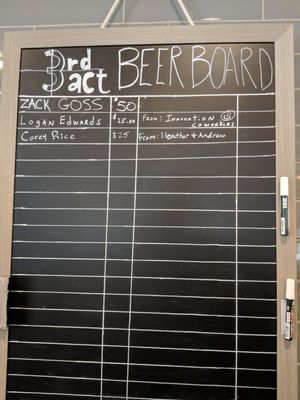 3rd act BEER BOARD
ZACK GOSS $50
LOGAN EDWARDS $25.00 From: INNOVATION COWORKERS
Corey Rice $25 From: Heather + Andrew